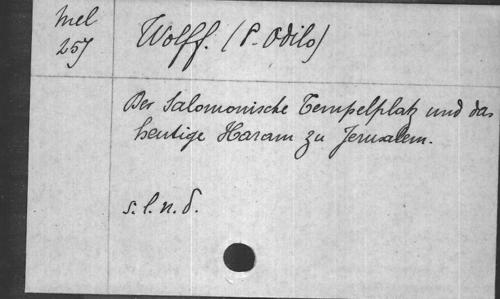 Mel
257
Wolff. (P. Odilo)
Der Salomonische Tempelplatz und das
heutige Haram zu Jerusalem.
s. l. n. d.